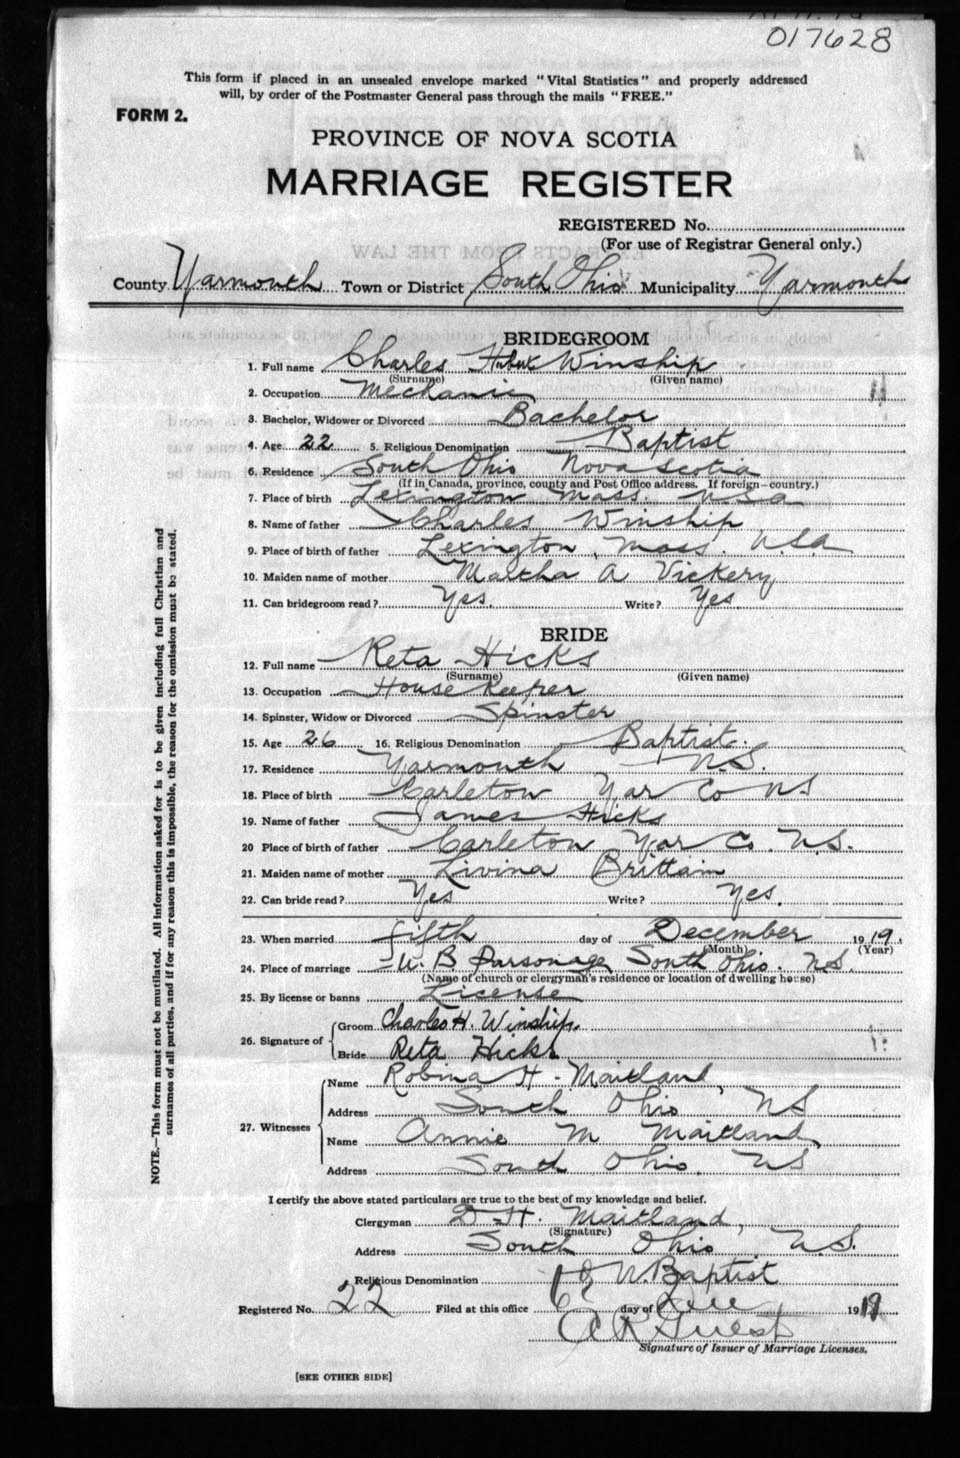 017628
This form if placed in an unsealed envelope marked "Vital Statistics" and properly addressed
will, by order of the Postmaster General pass through the mails "FREE."
FORM 2.
PROVINCE OF NOVA SCOTIA
MARRIAGE REGISTER
REGISTERED No.
(For use of Registrar General only.)
County Yarmouth Town or District South Ohio Municipality Yarmouth
BRIDEGROOM
1. Full name Charles Winship
(Surname) (Given name)
2. Occupation Mechanic
3. Bachelor, Widower or Divorced Bachelor
4. Age 22 5. Religious Denomination Baptist
6. Residence South Ohio Nova Scotia
(If in Canada, province, county and Post Office address. If foreign—country.)
7. Place of birth Lexington Mass. U.S.A
8. Name of father Charles Winship
9. Place of birth of father Lexington, Mass. U.S.A
10. Maiden name of mother Martha A Vickery
11. Can bridegroom read? Yes. Write? Yes
BRIDE
12. Full name Reta Hicks
(Surname) (Given name)
13. Occupation House Keeper
14. Spinster, Widow or Divorced Spinster
15. Age 26 16. Religious Denomination Baptist.
17. Residence Yarmouth N.S.
18. Place of birth Carleton Yar Co NS
19. Name of father James Hicks
20 Place of birth of father Carleton Yar Co. N.S.
21. Maiden name of mother Livina Brittain
22. Can bride read? Yes Write? Yes.
23. When married fifth day of December 1919.
(Month) (Year)
24. Place of marriage U. B. Parsonage, South Ohio. N.S.
(Name of church or clergyman's residence or location of dwelling house)
25. By license or banns License
26. Signature of
Groom Charles H. Winship.
Bride Reta Hicks
27. Witnesses
Name Robina H. Maitland,
Address South Ohio NS
Name Annie M Maitland,
Address South Ohio. NS
I certify the above stated particulars are true to the best of my knowledge and belief.
Clergyman D. H. Maitland,
(Signature)
Address South Ohio, N.S.
Religious Denomination U. Baptist
Registered No. 22 Filed at this office 6 day of Dec 1919
A R Guest
Signature of Issuer of Marriage Licenses.
[SEE OTHER SIDE]
NOTE.—This form must not be mutilated. All information asked for is to be given including full Christian and
surnames of all parties, and if for any reason this is impossible, the reason for the omission must be stated.